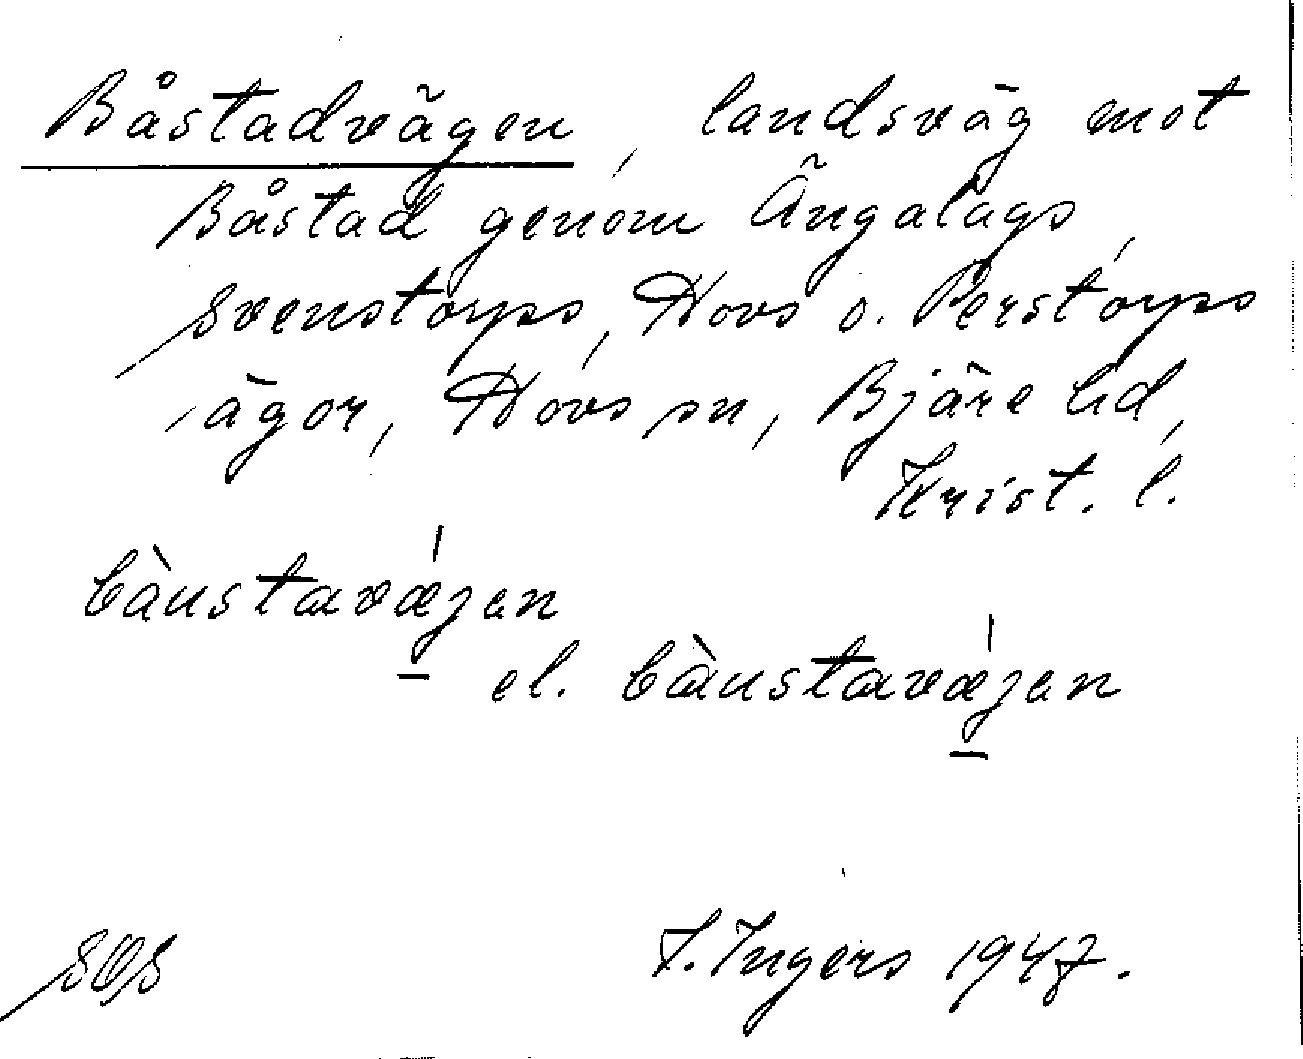 Båstadvägen, landsväg mot
Båstad genom Ängalags,
Svenstorps, Hovs o. Perstorps
ägor, Hovs sn, Bjäre hd,
Krist. l.
bàustavǽjen
el. bàustavǽjen
SOS
I. Ingers 1947.